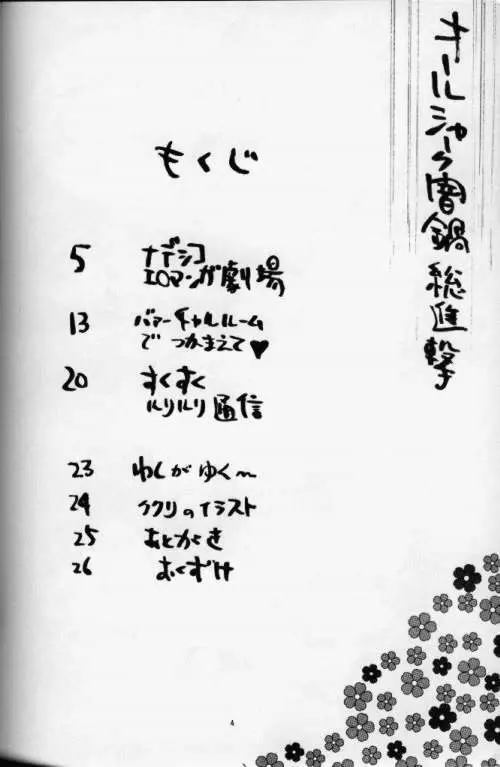 オールジャンク闇鍋総進撃
もくじ
5 ナデシコ
エロマンガ劇場
13 バァーチャルルーム
で つかまえて♥
20 すくすく
ルリルリ通信
23 わしがゆく〜
24 ククリのイラスト
25 あとがき
26 おくずけ
4